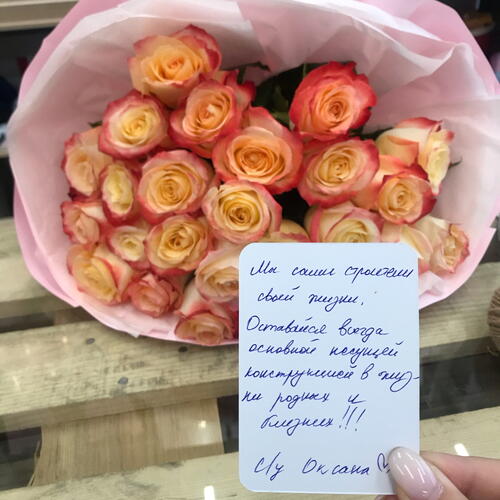 Мы сами строители
своей жизни.
Оставайся всегда
основной несущей
конструкцией в жиз-
ни родных и
близких!!!
Оксана